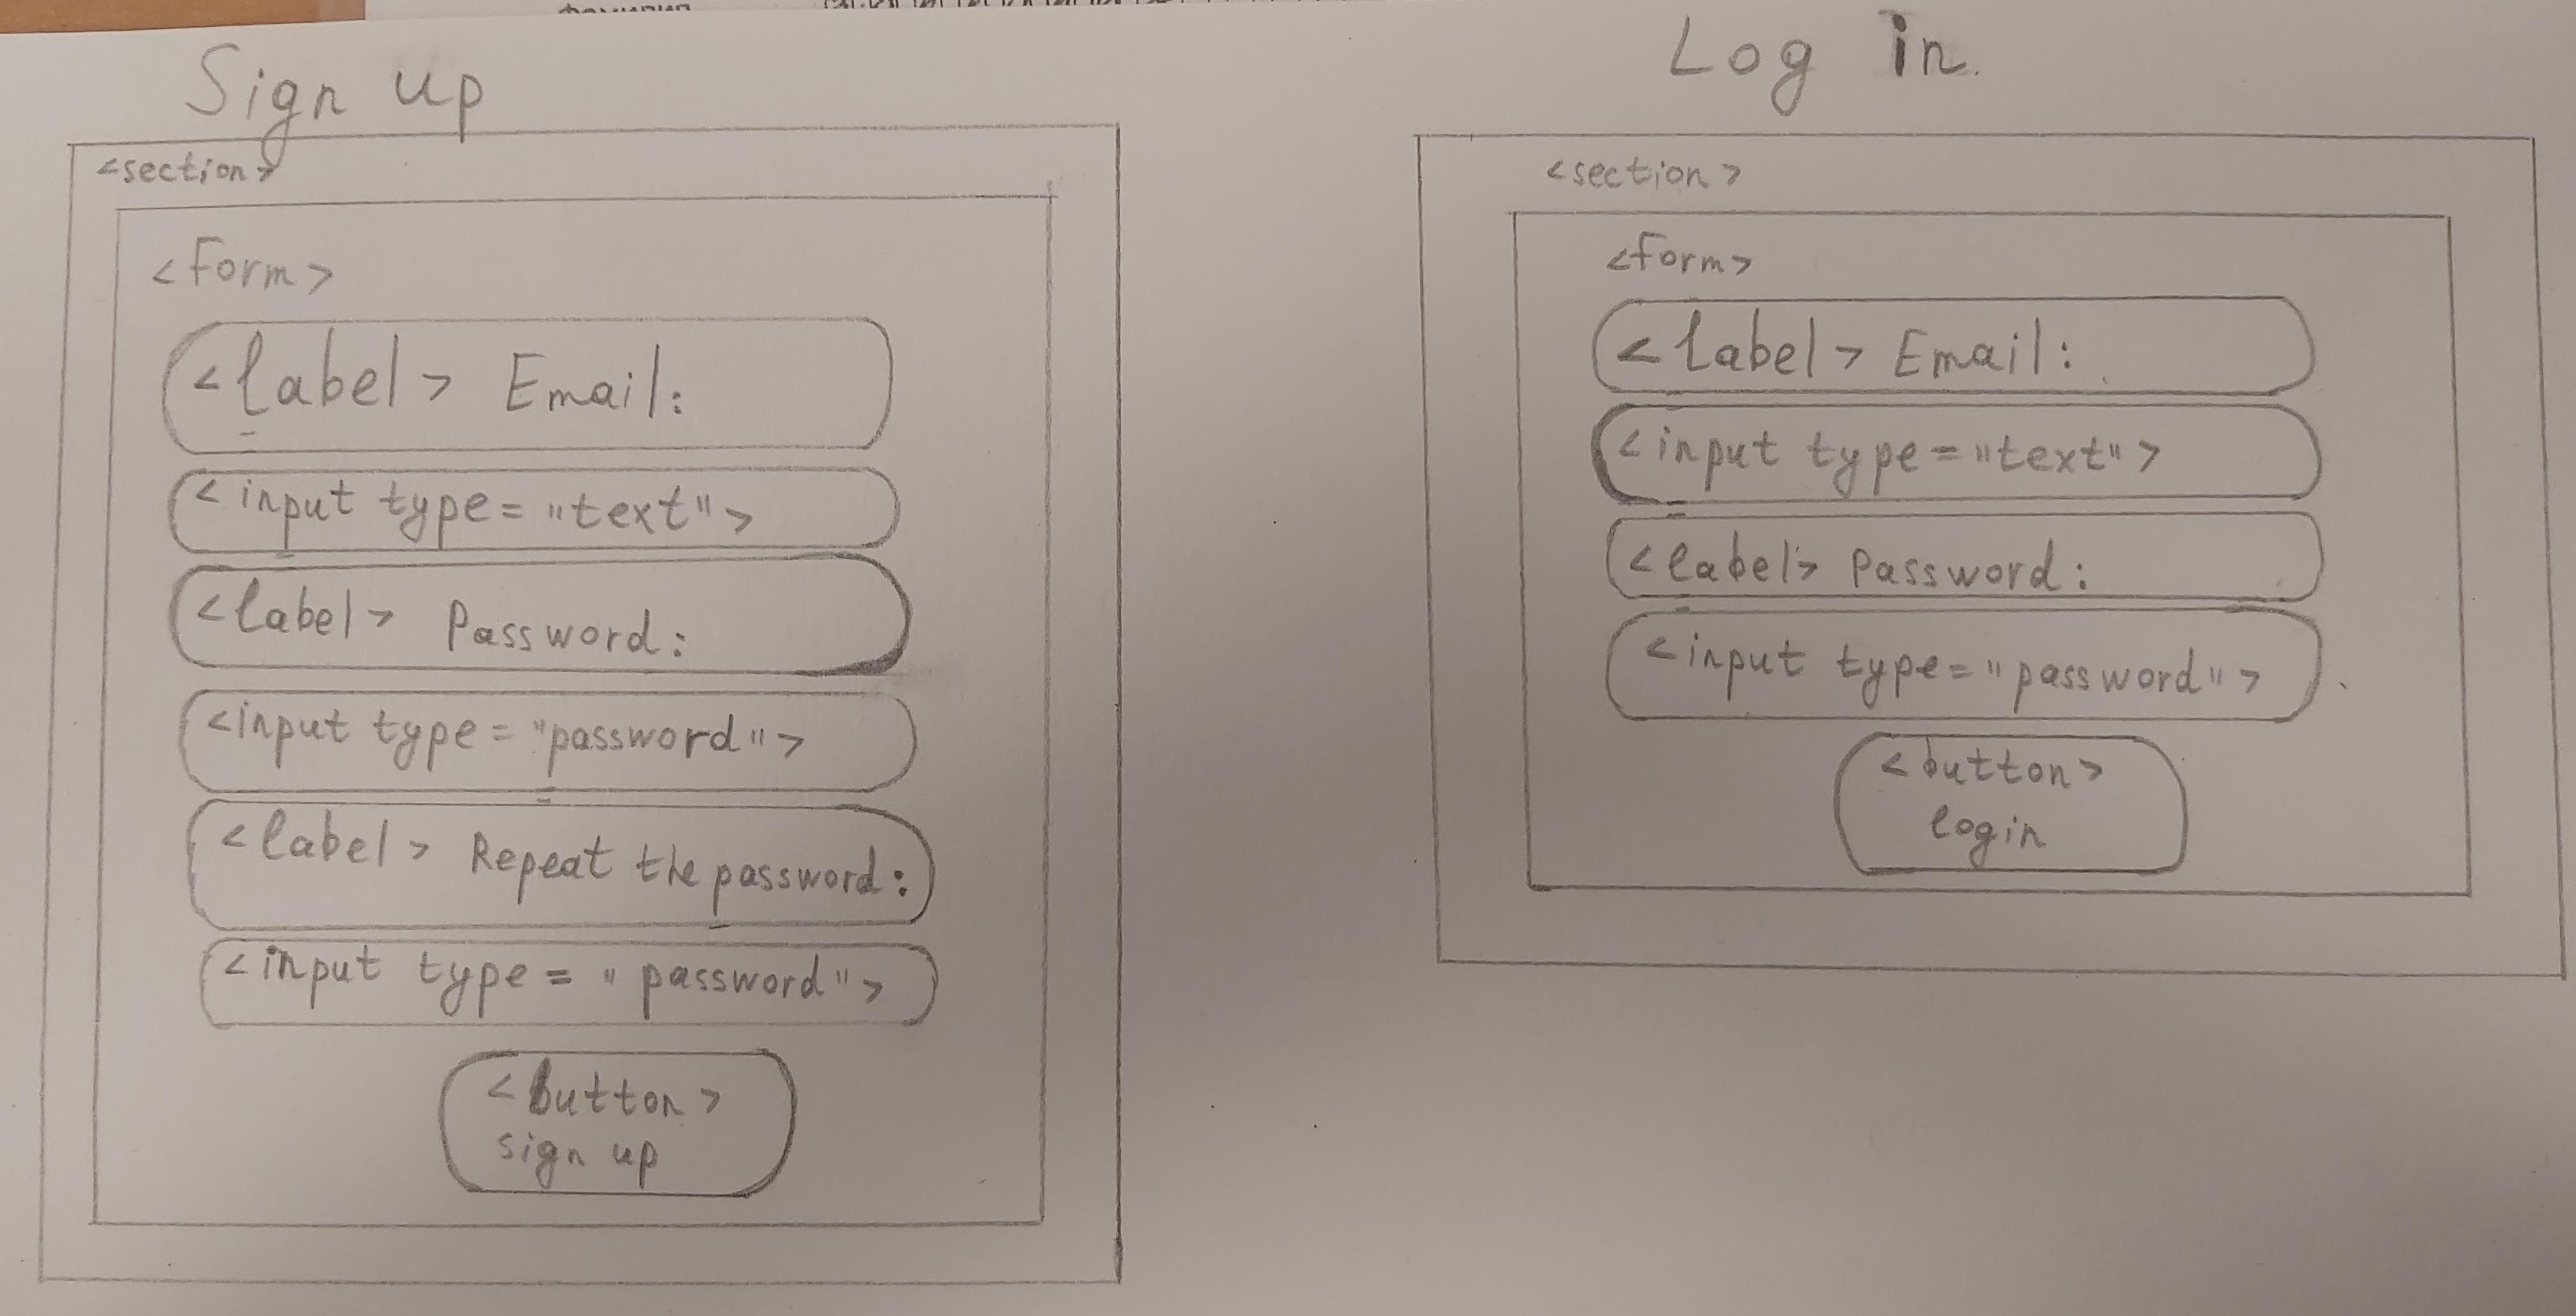 фамилия
Sign up
<section>
<form>
<label> Email:
<input type="text">
<label> Password:
<input type="password">
<label> Repeat the password:
<input type="password">
<button>
sign up
Log in
<section>
<form>
<label> Email:
<input type="text">
<label> Password:
<input type="password">
<button>
login